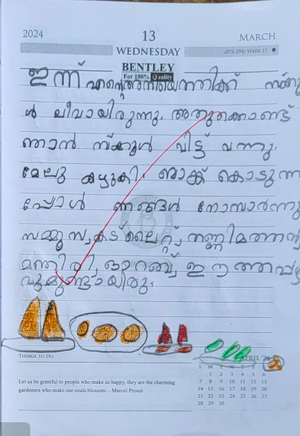 2024
13
MARCH
WEDNESDAY
(073-294) WEEK 11
BENTLEY
For 100% Quality
ഇന്ന് എന്റെ അനിയത്തിക്ക് സ്കൂ
ൾ ലീവായിരുന്നു. അതുകൊണ്ട്
ഞാൻ സ്കൂൾ വിട്ട് വന്നു.
മേലു കഴുകി. ബാങ്ക് കൊടുന്ന
പ്പോൾ ഞങ്ങൾ നോമ്പാർന്നു
സമ്മൂസ, കട്ലൈറ്റ്, തണ്ണിമത്തൻ
മുന്തിരി, ഓറഞ്ച്, ഈത്തപ്പഴ
വുമുണ്ടായിരു.
THINGS TO DO
APRIL
Let us be grateful to people who make us happy, they are the charming
gardeners who make our souls blossom - Marcel Proust
S M T W T F S
1 2 3 4 5 6
7 8 9 10 11 12 13
14 15 16 17 18 19 20
21 22 23 24 25 26 27
28 29 30